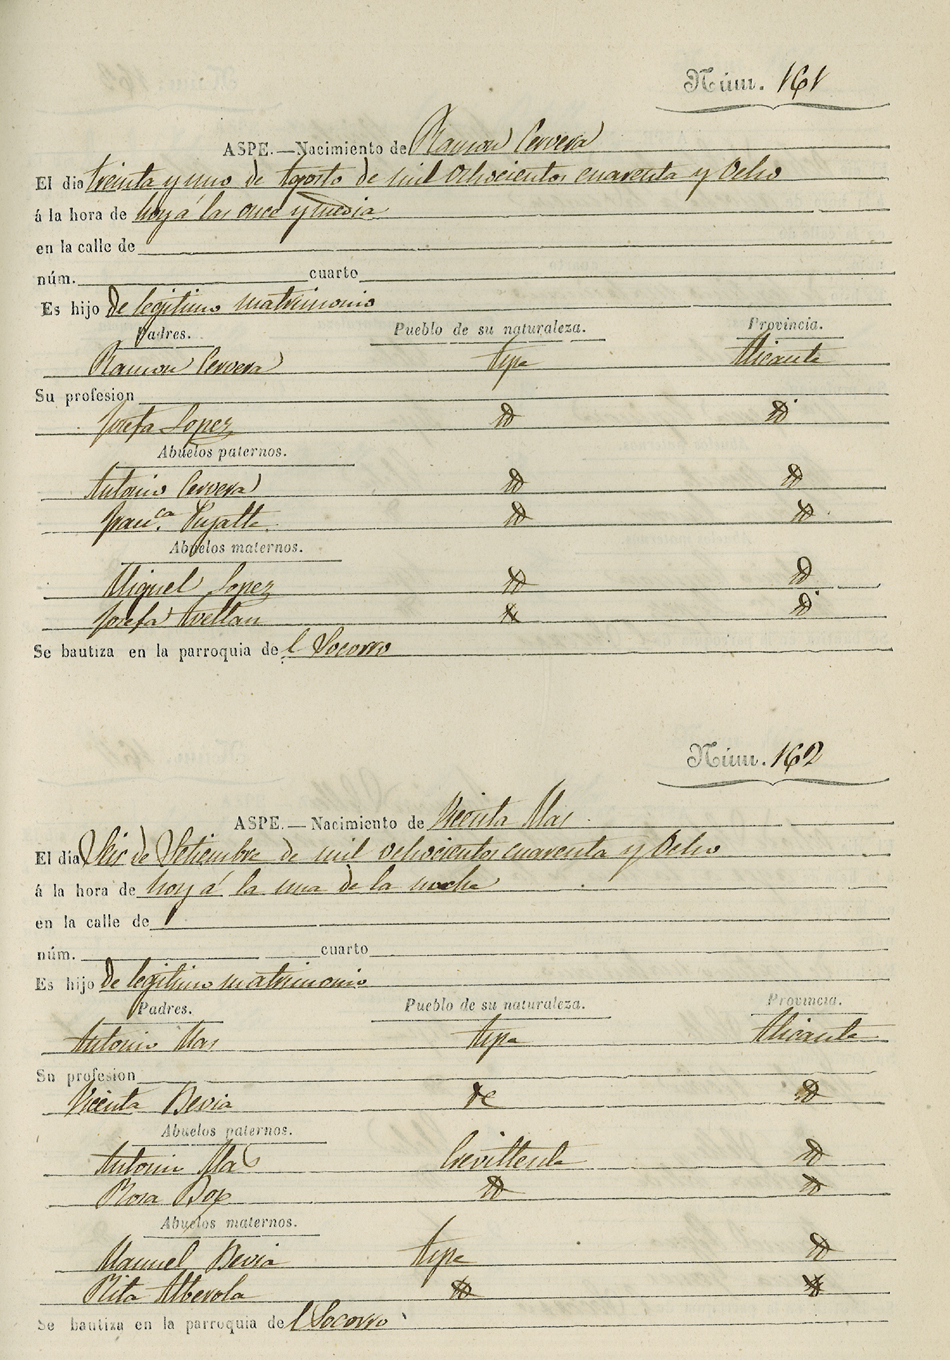 Núm. 161
ASPE.—Nacimiento de Ramon Cervera
El dia treinta y uno de Agosto de mil ochocientos cuarenta y Ocho
á la hora de hoy á las once y media
en la calle de
núm. cuarto
Es hijo de legitimo matrimonio
Padres. Pueblo de su naturaleza. Provincia.
Ramon Cervera Aspe Alicante
Su profesion
Josefa Lopez id id
Abuelos paternos.
Antonio Cervera id id
Fran.ca Pujalte id id
Abuelos maternos.
Miguel Lopez id id
Josefa Avellan id id
Se bautiza en la parroquia del Socorro
Núm. 162
ASPE.—Nacimiento de Vicenta Mas
El dia Seis de Setiembre de mil ochocientos cuarenta y Ocho
á la hora de hoy á la una de la noche
en la calle de
núm. cuarto
Es hijo de legitimo matrimonio
Padres. Pueblo de su naturaleza. Provincia.
Antonio Mas Aspe Alicante
Su profesion
Vicenta Bevia id
Abuelos paternos.
Antonio Mas Crevillente id
Rosa id id
Abuelos maternos.
Manuel Bevia Aspe id
Rita Alberola id id
Se bautiza en la parroquia del Socorro